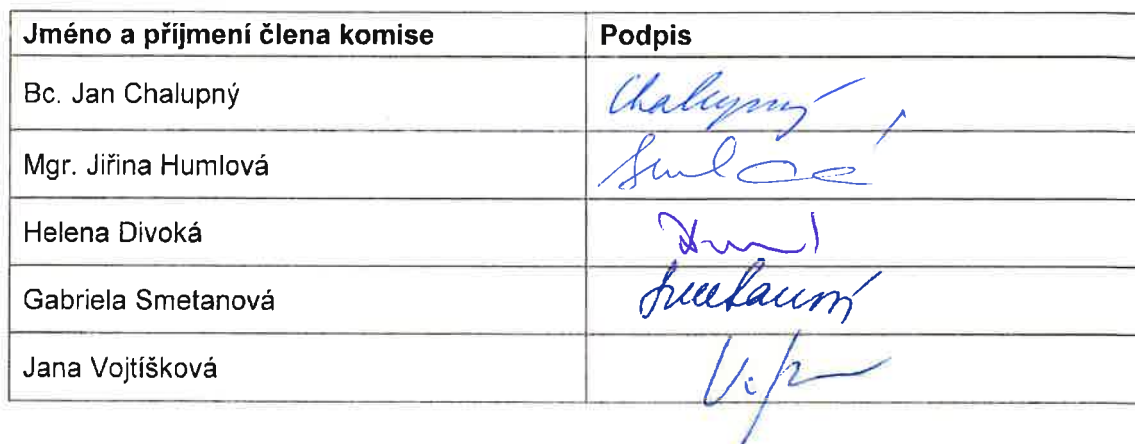 Jméno a příjmení člena komise Podpis
Bc. Jan Chalupný Chalupný
Mgr. Jiřina Humlová
Helena Divoká
Gabriela Smetanová Smetanová
Jana Vojtíšková